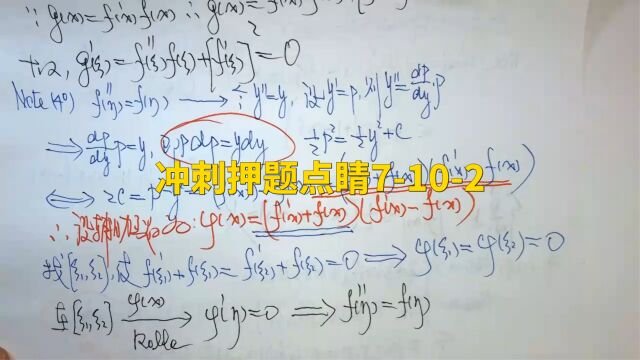 ∵ g(x)=f'(x)f(x) ∴ g'(x)=
故, g'(ξ)=f''(ξ)f(ξ)+[f'(ξ)]²=0
Note(4°) f''(η)=f(η) ⟶ ∵ y''=y, 设y'=p, 则y''=dp/dy p
⟹ dp/dy p=y, pdp=ydy ½p²=½y²+C
⟺ 2C=p² (f'(x)-f(x))
冲刺押题点睛7-10-2
∴ 设辅助函数: φ(x)=(f'(x)+f(x))(f'(x)-f(x))
找[ξ₁,ξ₂], 使f'(ξ₁)+f(ξ₁)=f'(ξ₂)+f(ξ₂)=0 ⟹ φ(ξ₁)=φ(ξ₂)=0
在[ξ₁,ξ₂] φ(x) Rolle ⟶ φ'(η)=0 ⟹ f''(η)=f(η)